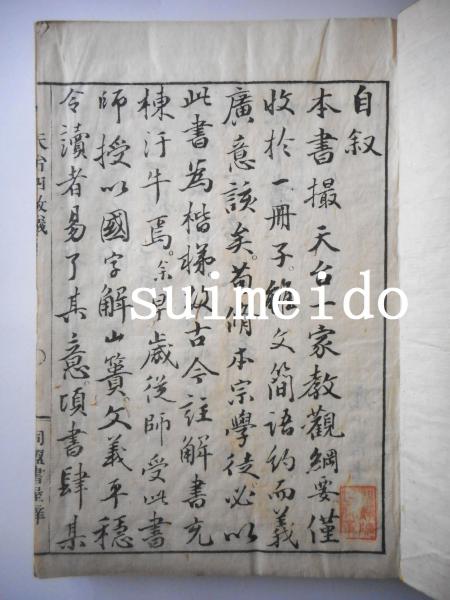 自叙
本書撮天台一家教觀綱要僅
收於一冊子。雖文簡語約而義
廣意該矣。苟脩本宗學徒必以
此書為楷梯。故古今註解書充
棟汗牛焉。余早歲從師受此書
師授以國字解。文義平穩
令讀者易了其意。項書肆某
天台四教義
suimeido